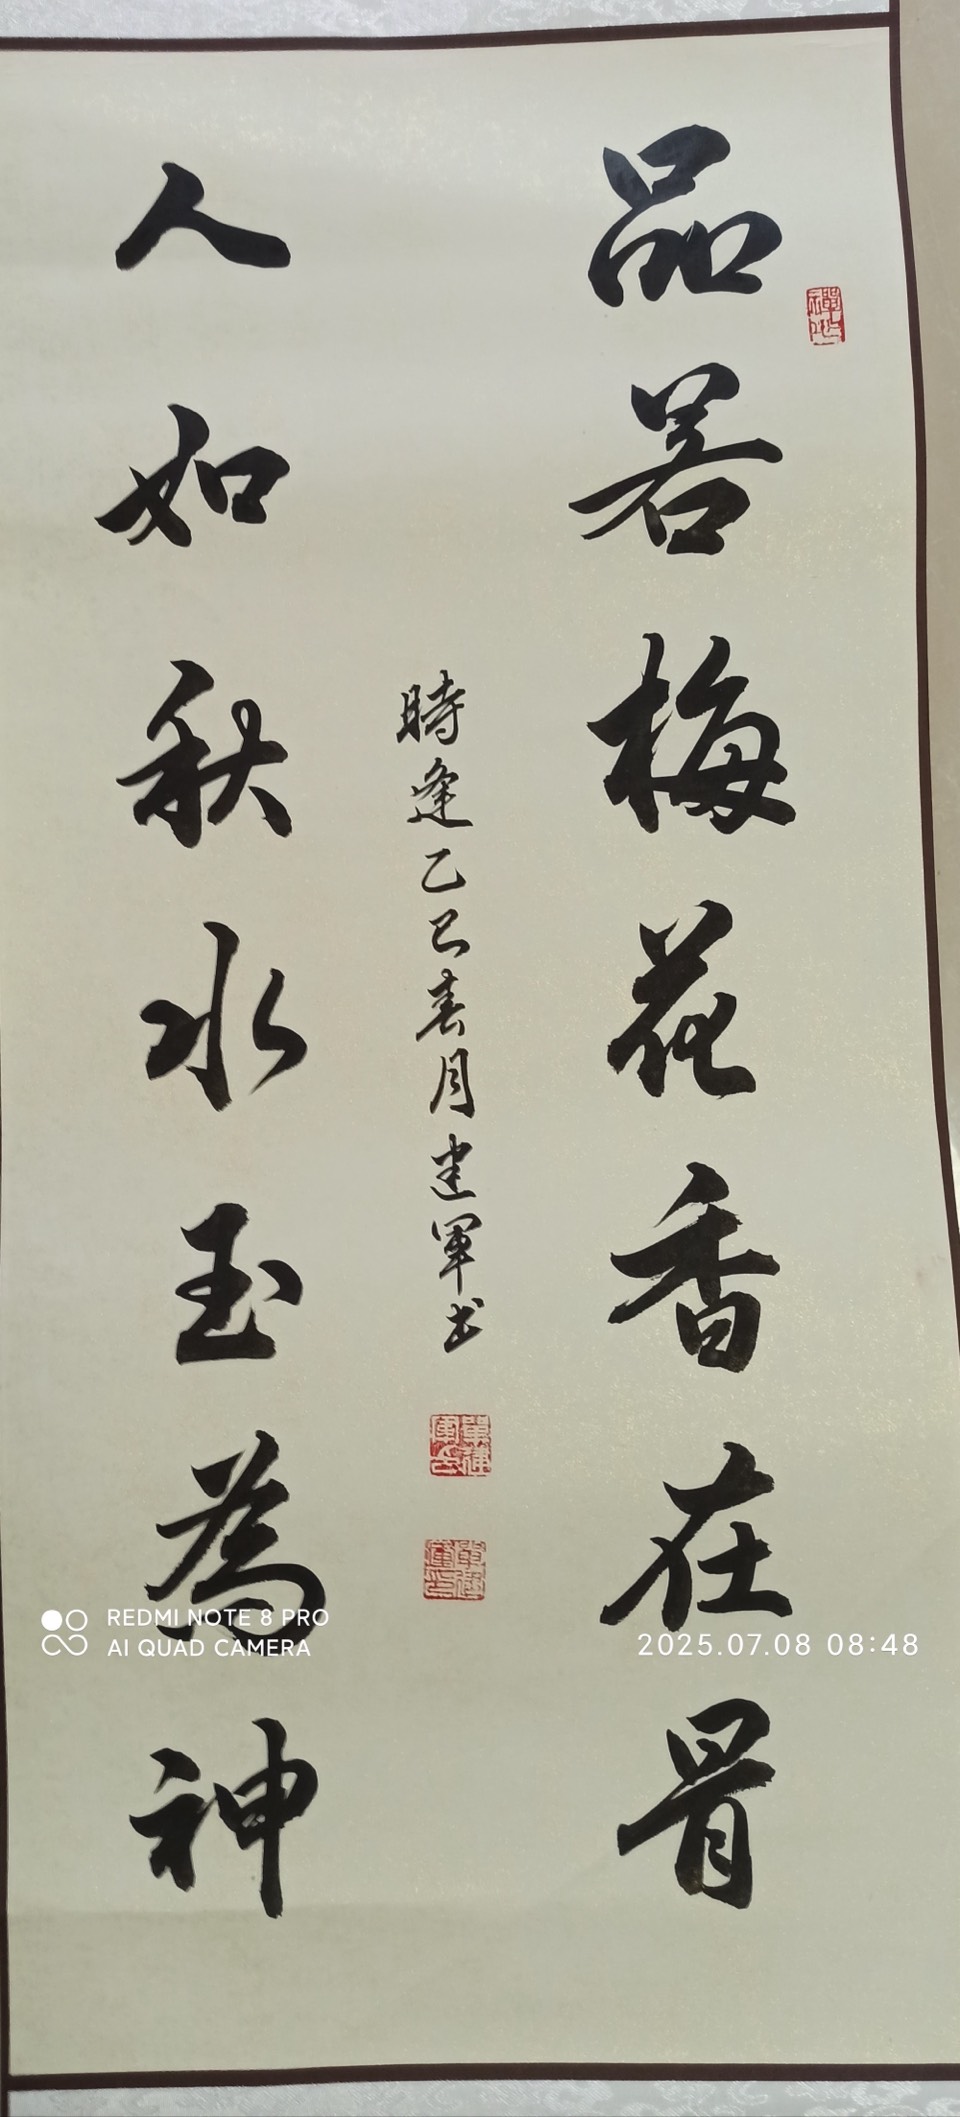 品若梅花香在骨
人如秋水玉為神
時逢乙巳春月建軍书
REDMI NOTE 8 PRO
AI QUAD CAMERA
2025.07.08 08:48